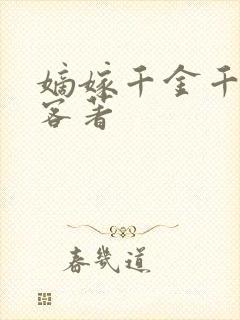 嫡嫁千金千
客著
春几道